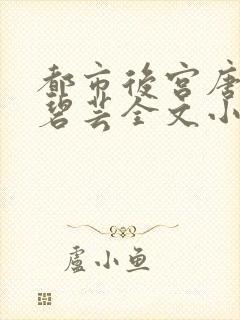 都市後宮唐
碧芸全文小
盧小魚